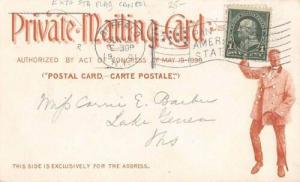 EXPO STA FLAG CANCEL 25-
Private Mailing Card
AUTHORIZED BY ACT OF CONGRESS OF MAY 19-1898.
("POSTAL CARD-CARTE POSTALE.")
Miss Carrie E. Barber
Lake Geneva
Wis
THIS SIDE IS EXCLUSIVELY FOR THE ADDRESS.